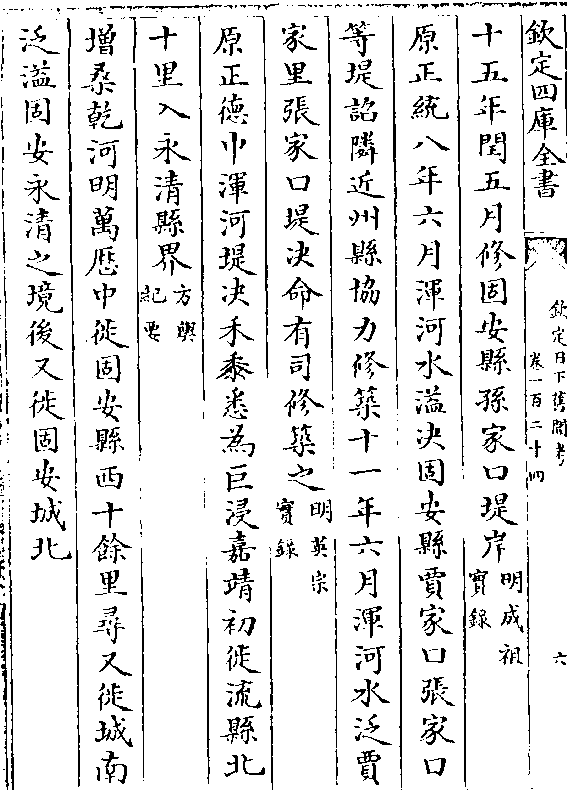 欽定四庫全書
欽定日下舊聞考
卷一百二十四
六
十五年閏五月修固安縣孫家口堤岸明成祖
實録
原正統八年六月渾河水溢決固安縣賈家口張家口
等堤詔隣近州縣協力修築十一年六月渾河水泛賈
家里張家口堤決命有司修築之明英宗
實録
原正德中渾河堤決禾黍悉為巨浸嘉靖初徙流縣北
十里入永清縣界方輿
紀要
增桑乾河明萬歴中徙固安縣西十餘里尋又徙城南
泛溢固安永清之境後又徙固安城北